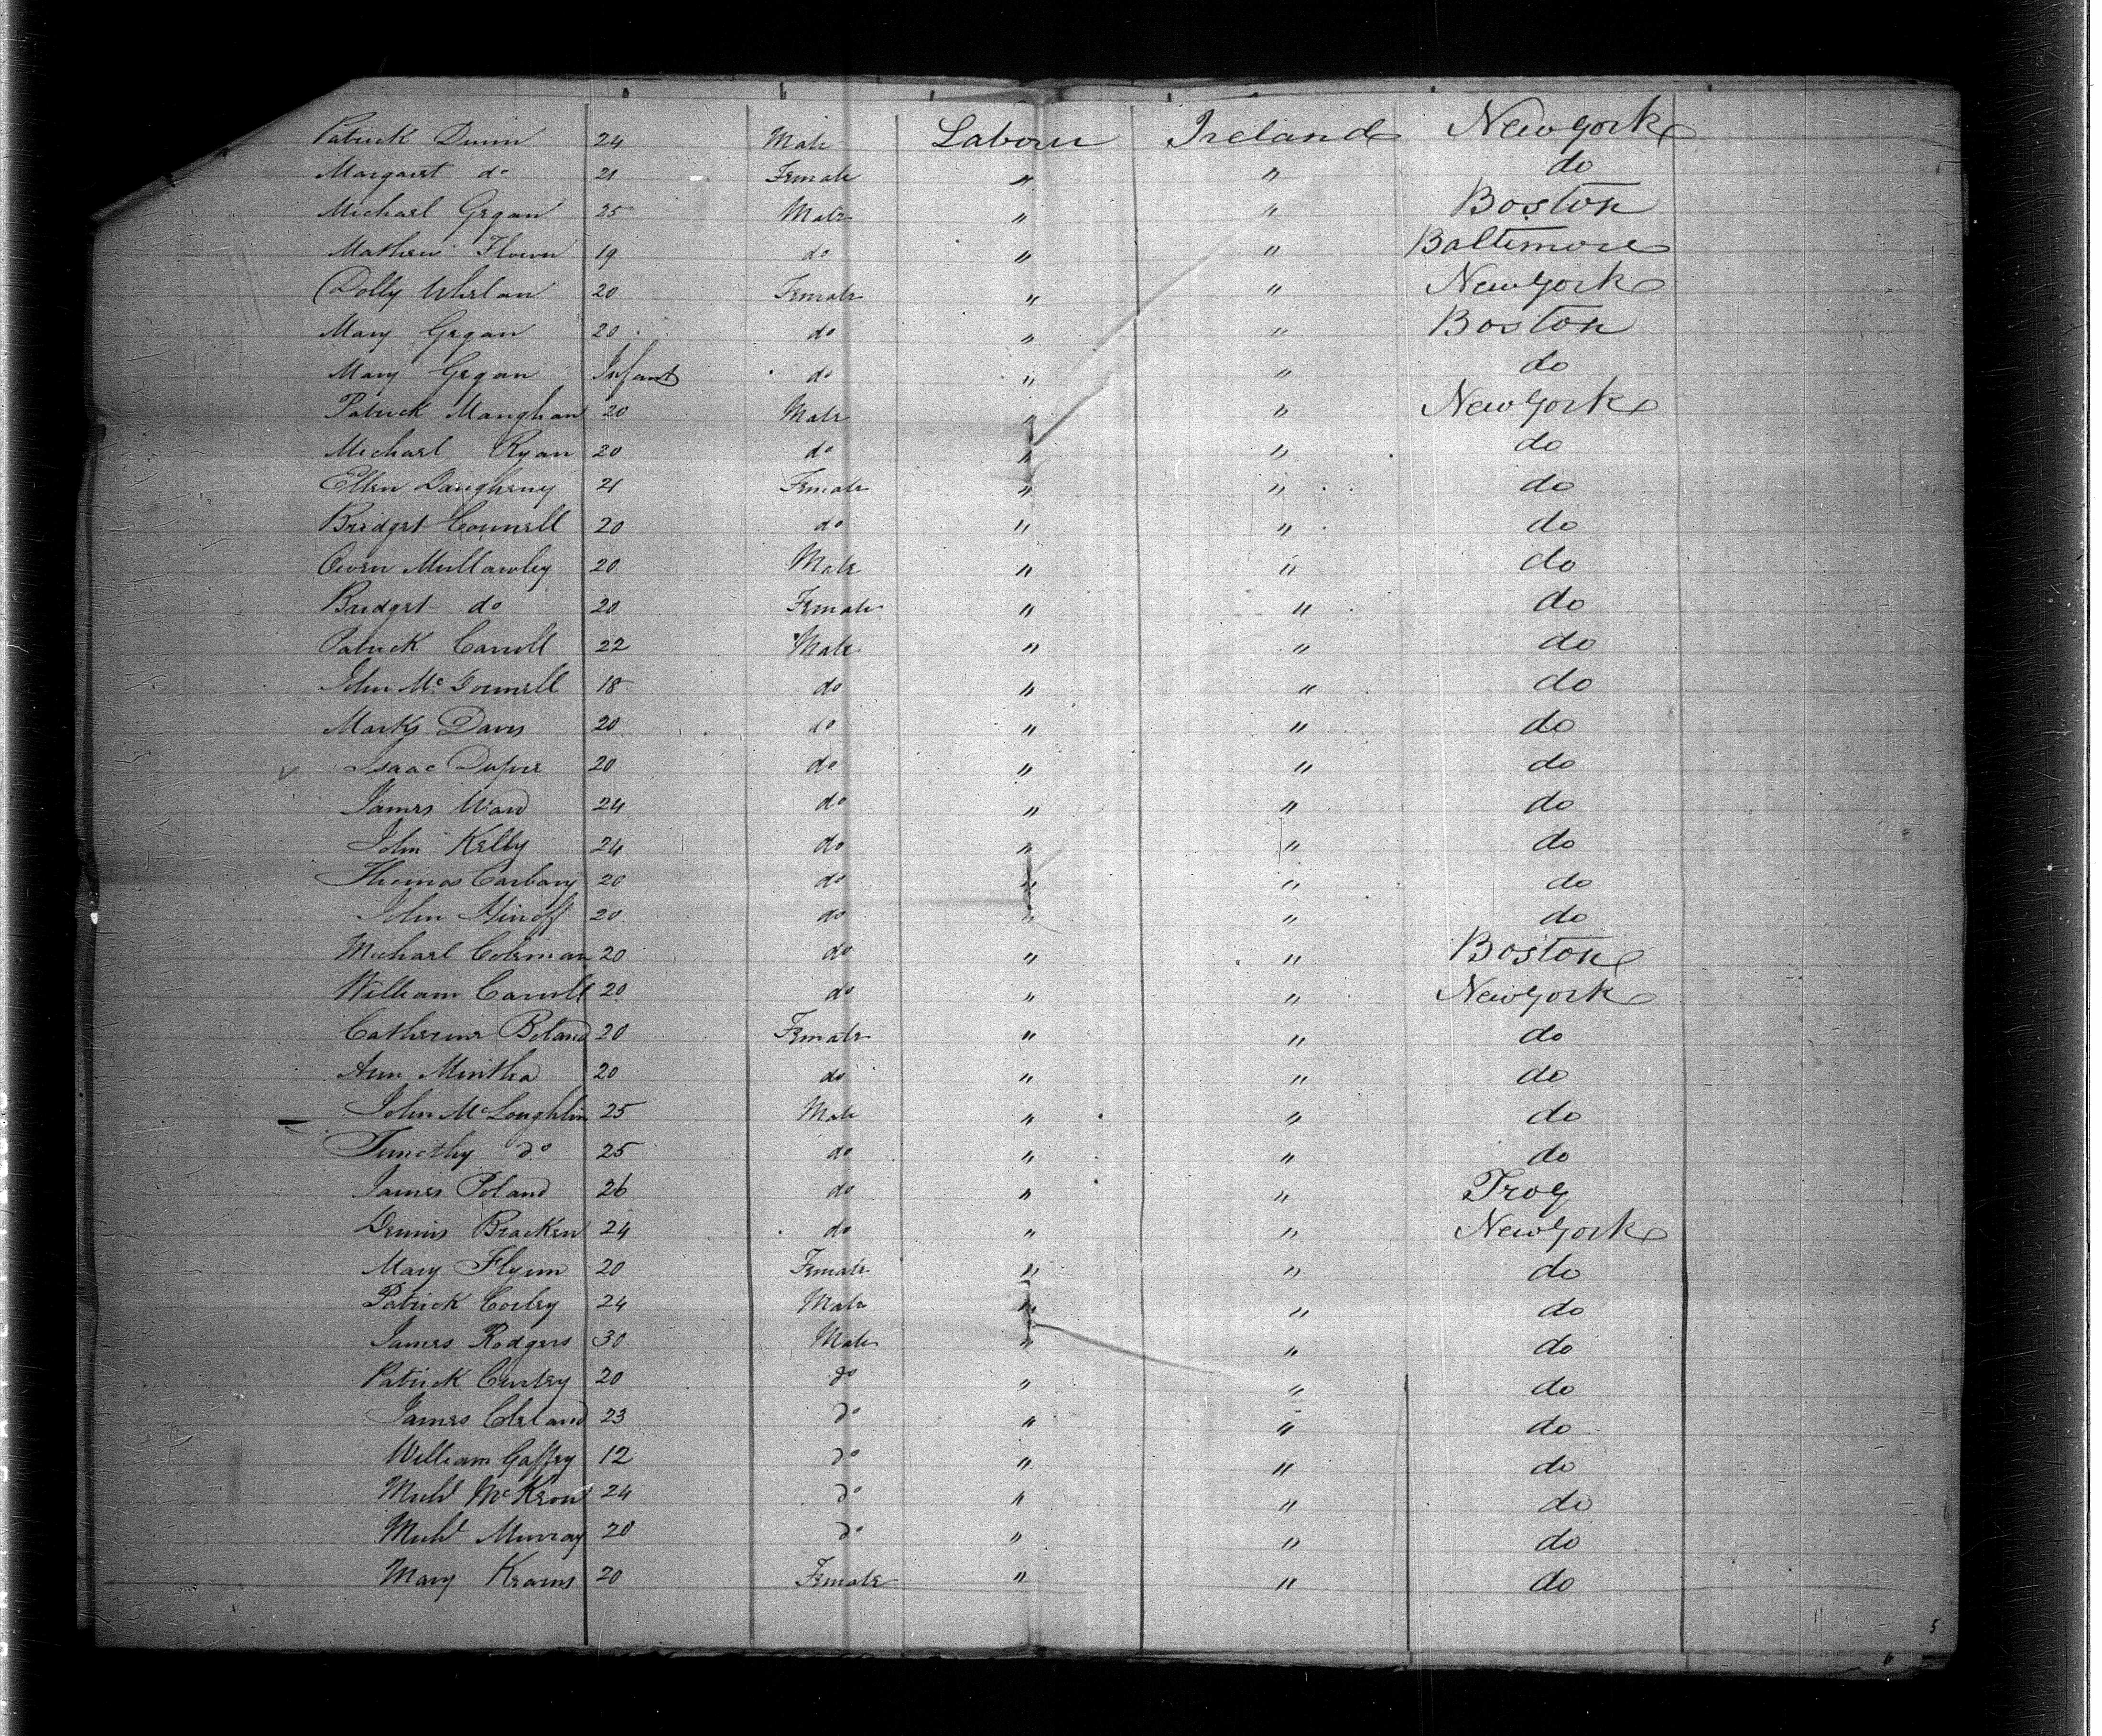 Patrick Dunn 24 Male Labour Ireland New York
Margaret do 21 Female " " do
Michael Gegan 25 Male " " Boston
Mathew 19 do " " Baltimore
Dolly Whelan 20 Female " " New York
Mary Gegan 20 do " " Boston
Mary Gegan Infant do " " do
Patrick Manghan 20 Male " " New York
Michael Ryan 20 do " " do
Ellen Daugheny 21 Female " " do
Bridget Connell 20 do " " do
Owen Mullawley 20 Male " " do
Bridget do 20 Female " " do
Patrick Carroll 22 Male " " do
John McDonnell 18 do " " do
Marks Davis 20 do " " do
Isaac 20 do " " do
James Ward 24 do " " do
John Kelly 24 do " " do
Thomas Carbary 20 do " " do
John 20 do " " do
Michael Coleman 20 do " " Boston
William Carroll 20 do " " New York
Catherine Boland 20 Female " " do
Ann Mintha 20 do " " do
John McLoughlin 25 Male " " do
Timothy do 25 do " " do
James Poland 26 do " " Troy
Dennis Bracken 24 do " " New York
Mary Flynn 20 Female " " do
Patrick Corley 24 Male " " do
James Rodgers 30 Male " " do
Patrick Curley 20 do " " do
James Cleland 23 do " " do
William Gaffey 12 do " " do
Michl McKeon 24 do " " do
Michl Murray 20 do " " do
Mary Kearns 20 Female " " do
5